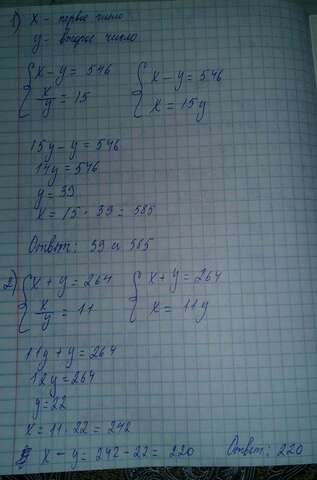 1) x - первое число
y - второе число
{ x - y = 546 { x - y = 546
x/y = 15 x = 15y
15y - y = 546
14y = 546
y = 39
x = 15 · 39 = 585
Ответ: 39 и 585
2) { x + y = 264 { x + y = 264
x/y = 11 x = 11y
11y + y = 264
12y = 264
y = 22
x = 11 · 22 = 242
x - y = 242 - 22 = 220 Ответ: 220